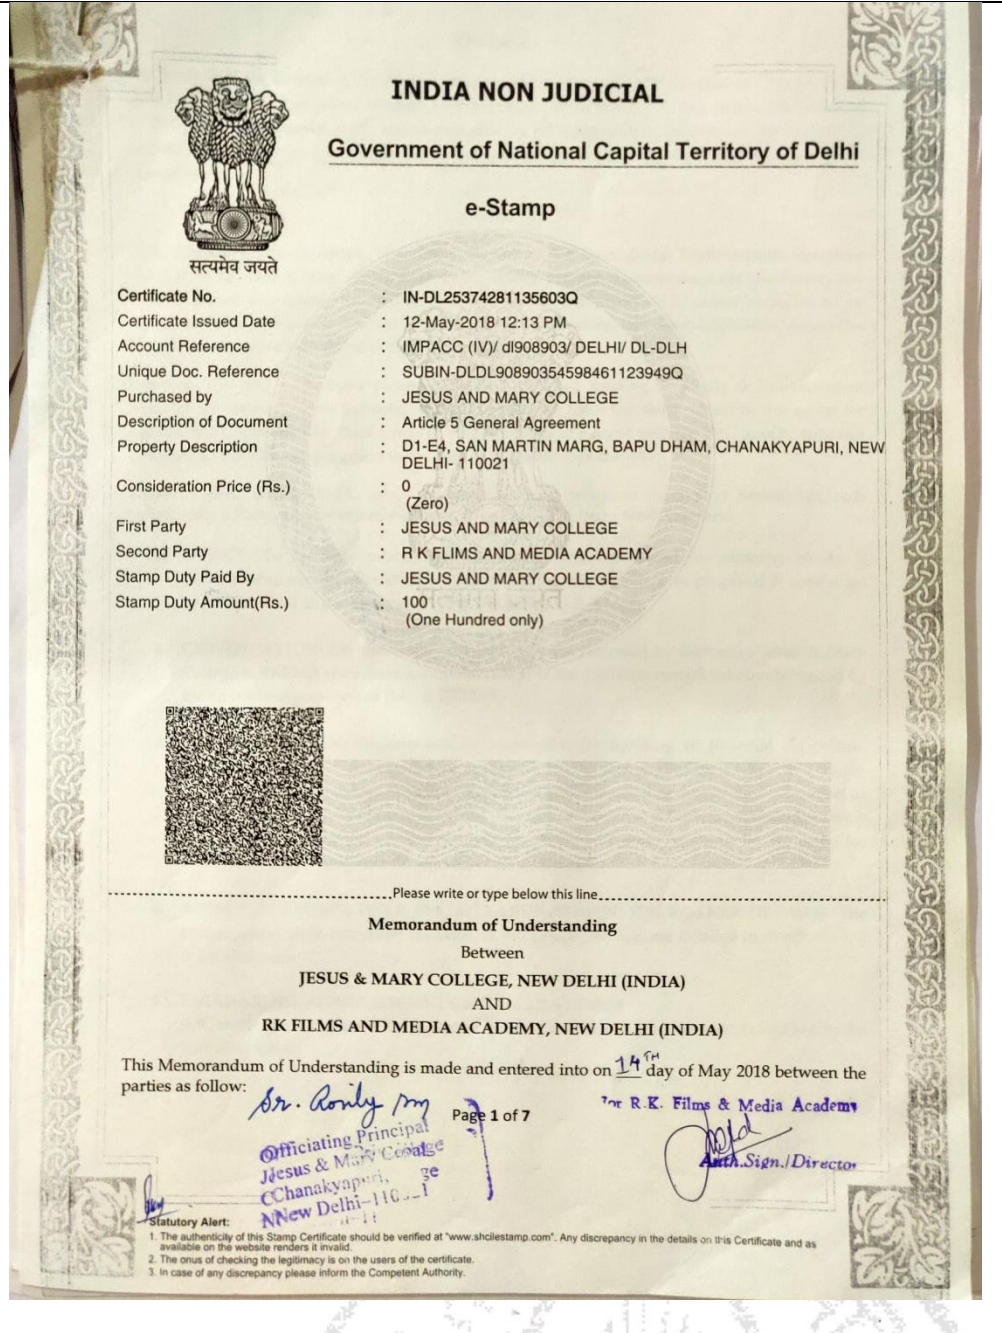 INDIA NON JUDICIAL
Government of National Capital Territory of Delhi
e-Stamp
सत्यमेव जयते
Certificate No. : IN-DL25374281135603Q
Certificate Issued Date : 12-May-2018 12:13 PM
Account Reference : IMPACC (IV)/ dl908903/ DELHI/ DL-DLH
Unique Doc. Reference : SUBIN-DLDL90890354598461123949Q
Purchased by : JESUS AND MARY COLLEGE
Description of Document : Article 5 General Agreement
Property Description : D1-E4, SAN MARTIN MARG, BAPU DHAM, CHANAKYAPURI, NEW
DELHI- 110021
Consideration Price (Rs.) : 0
(Zero)
First Party : JESUS AND MARY COLLEGE
Second Party : R K FLIMS AND MEDIA ACADEMY
Stamp Duty Paid By : JESUS AND MARY COLLEGE
Stamp Duty Amount(Rs.) : 100
(One Hundred only)
Please write or type below this line
Memorandum of Understanding
Between
JESUS & MARY COLLEGE, NEW DELHI (INDIA)
AND
RK FILMS AND MEDIA ACADEMY, NEW DELHI (INDIA)
This Memorandum of Understanding is made and entered into on 14TH day of May 2018 between the
parties as follow:
Page 1 of 7
Officiating Principal
Jesus & Mary College
Chanakyapuri,
New Delhi-110021
For R.K. Films & Media Academy
Auth.Sign./Director
Statutory Alert:
1. The authenticity of this Stamp Certificate should be verified at "www.shcilestamp.com". Any discrepancy in the details on this Certificate and as
available on the website renders it invalid.
2. The onus of checking the legitimacy is on the users of the certificate.
3. In case of any discrepancy please inform the Competent Authority.